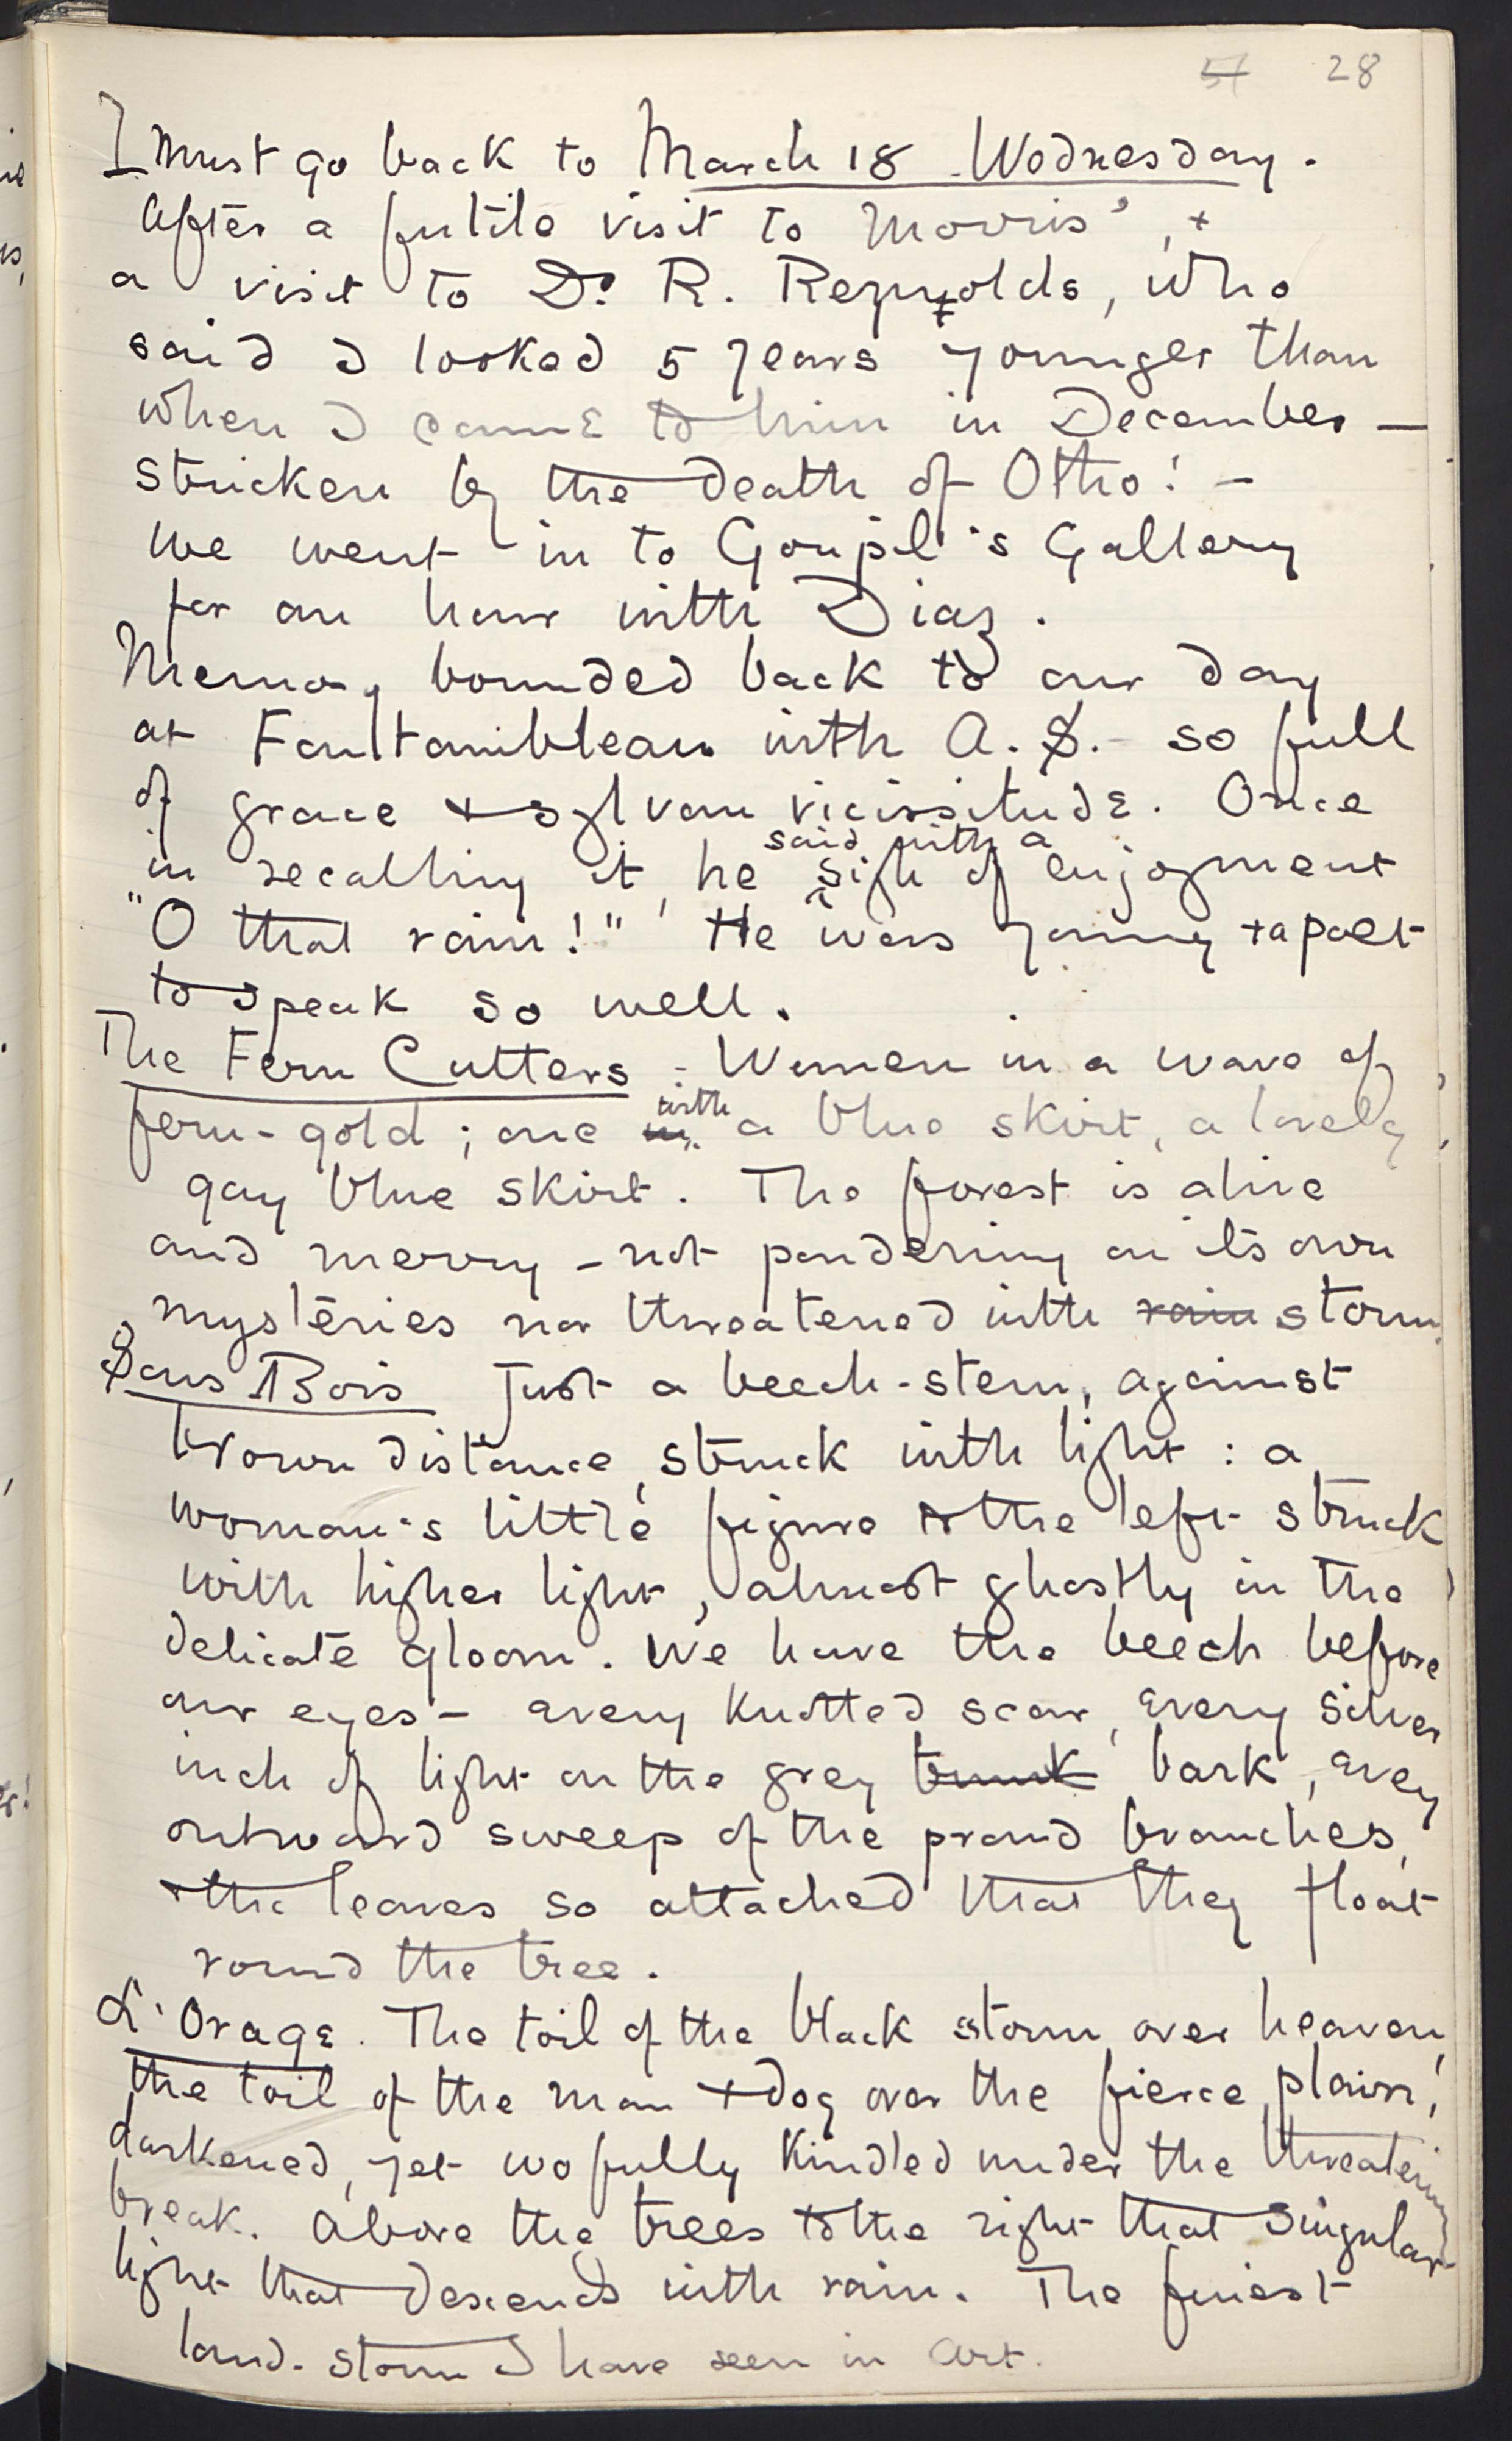 57 28
I must go back to March 18 Wednesday.
After a futile visit to Morris', +
a visit to Dr R. Reynolds, who
said I looked 5 years younger than
when I came to him in December —
stricken by the death of Otho! –
we went in to Goupil's Gallery
for an hour with Diaz.
Memory bounded back to our day
at Fontainbleau with A. S. – so full
of grace + sylvan vicissitude. Once
in recalling it, he said with a sigh of enjoyment
"O that rain!" He was young + a poet
to speak so well.
The Fern Cutters – Women in a wave of
fern-gold; one in with a blue skirt, a lovely
gay blue skirt. The forest is alive
and merry – not pondering on its own
mysteries nor threatened with rain storm.
Sous Bois Just a beech-stem, against
brown distance, struck with light: a
woman's little figure to the left struck
with higher light, almost ghostly in the
delicate gloom. We have the beech before
our eyes – every knotted scar, every silver
inch of light on the grey trunk bark, every
outward sweep of the proud branches,
+ the leaves so attached that they float
round the tree.
L'Orage. The toil of the black storm over heaven,
the toil of the man + dog over the fierce plain,
darkened, yet wofully kindled under the threatening
break. Above the trees to the right that singular
light that descends with rain. The finest
land-storm I have seen in Art.